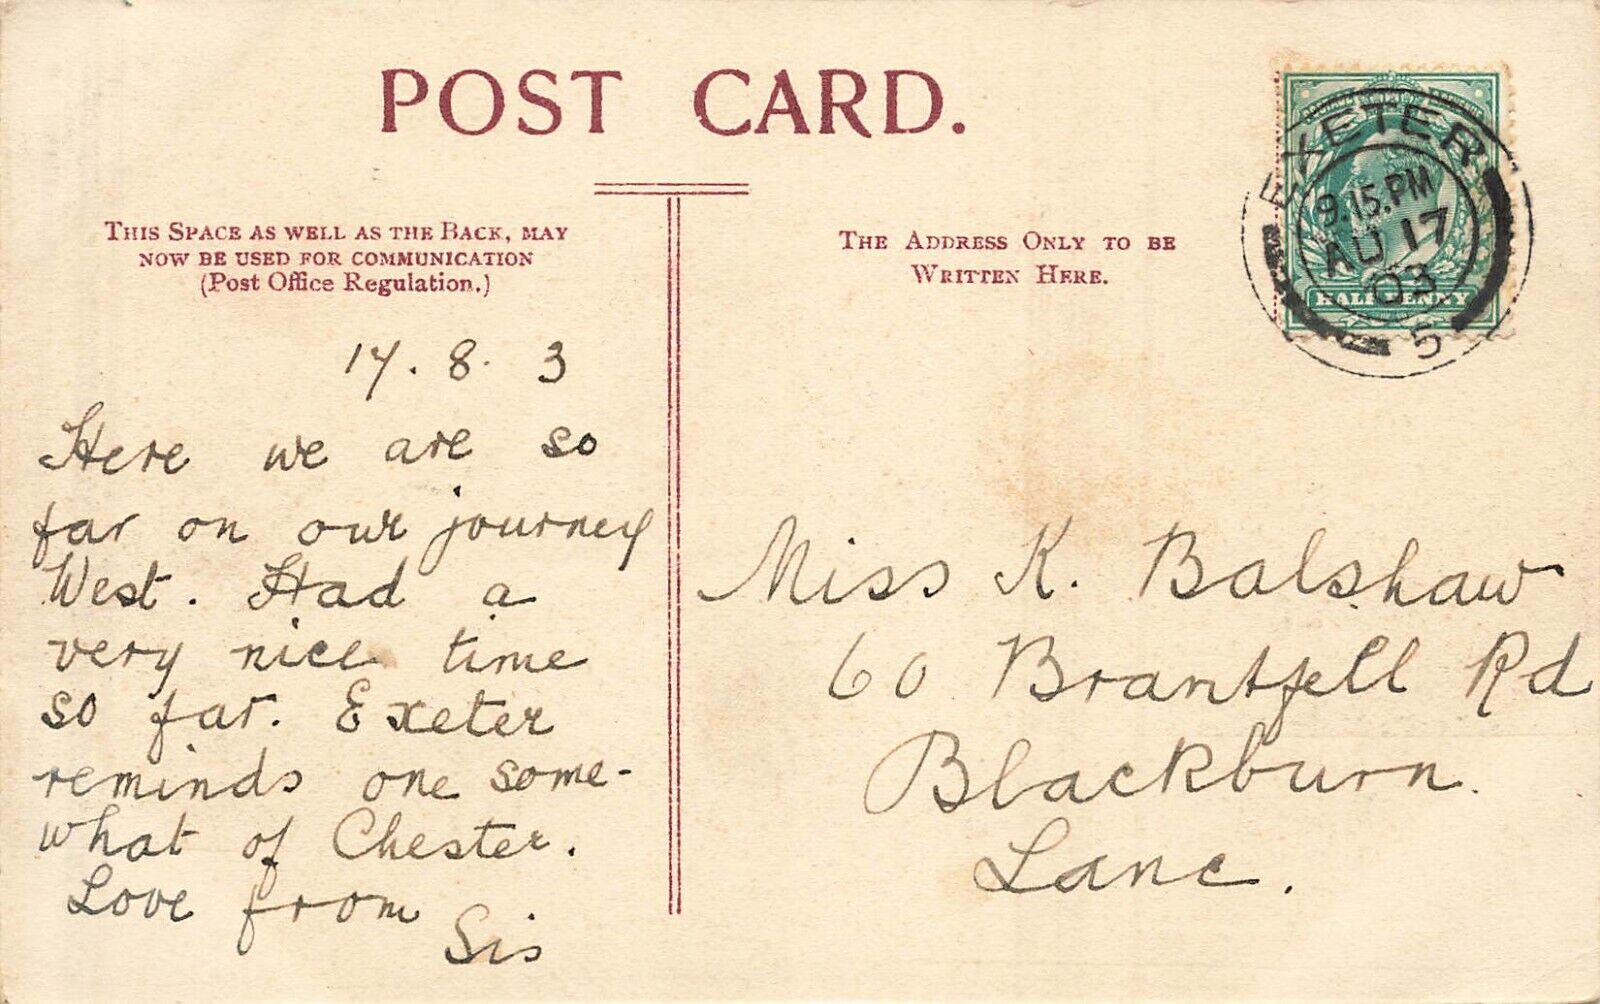 POST CARD.
THIS SPACE AS WELL AS THE BACK, MAY
NOW BE USED FOR COMMUNICATION
(Post Office Regulation.)
THE ADDRESS ONLY TO BE
WRITTEN HERE.
EXETER
9.15.PM
AU 17
03
5
HALFPENNY
17. 8. 3
Here we are so
far on our journey
West. Had a
very nice time
so far. Exeter
reminds one some-
what of Chester.
Love from
Sis
Miss K. Balshaw
60 Brantfell Rd
Blackburn.
Lanc.